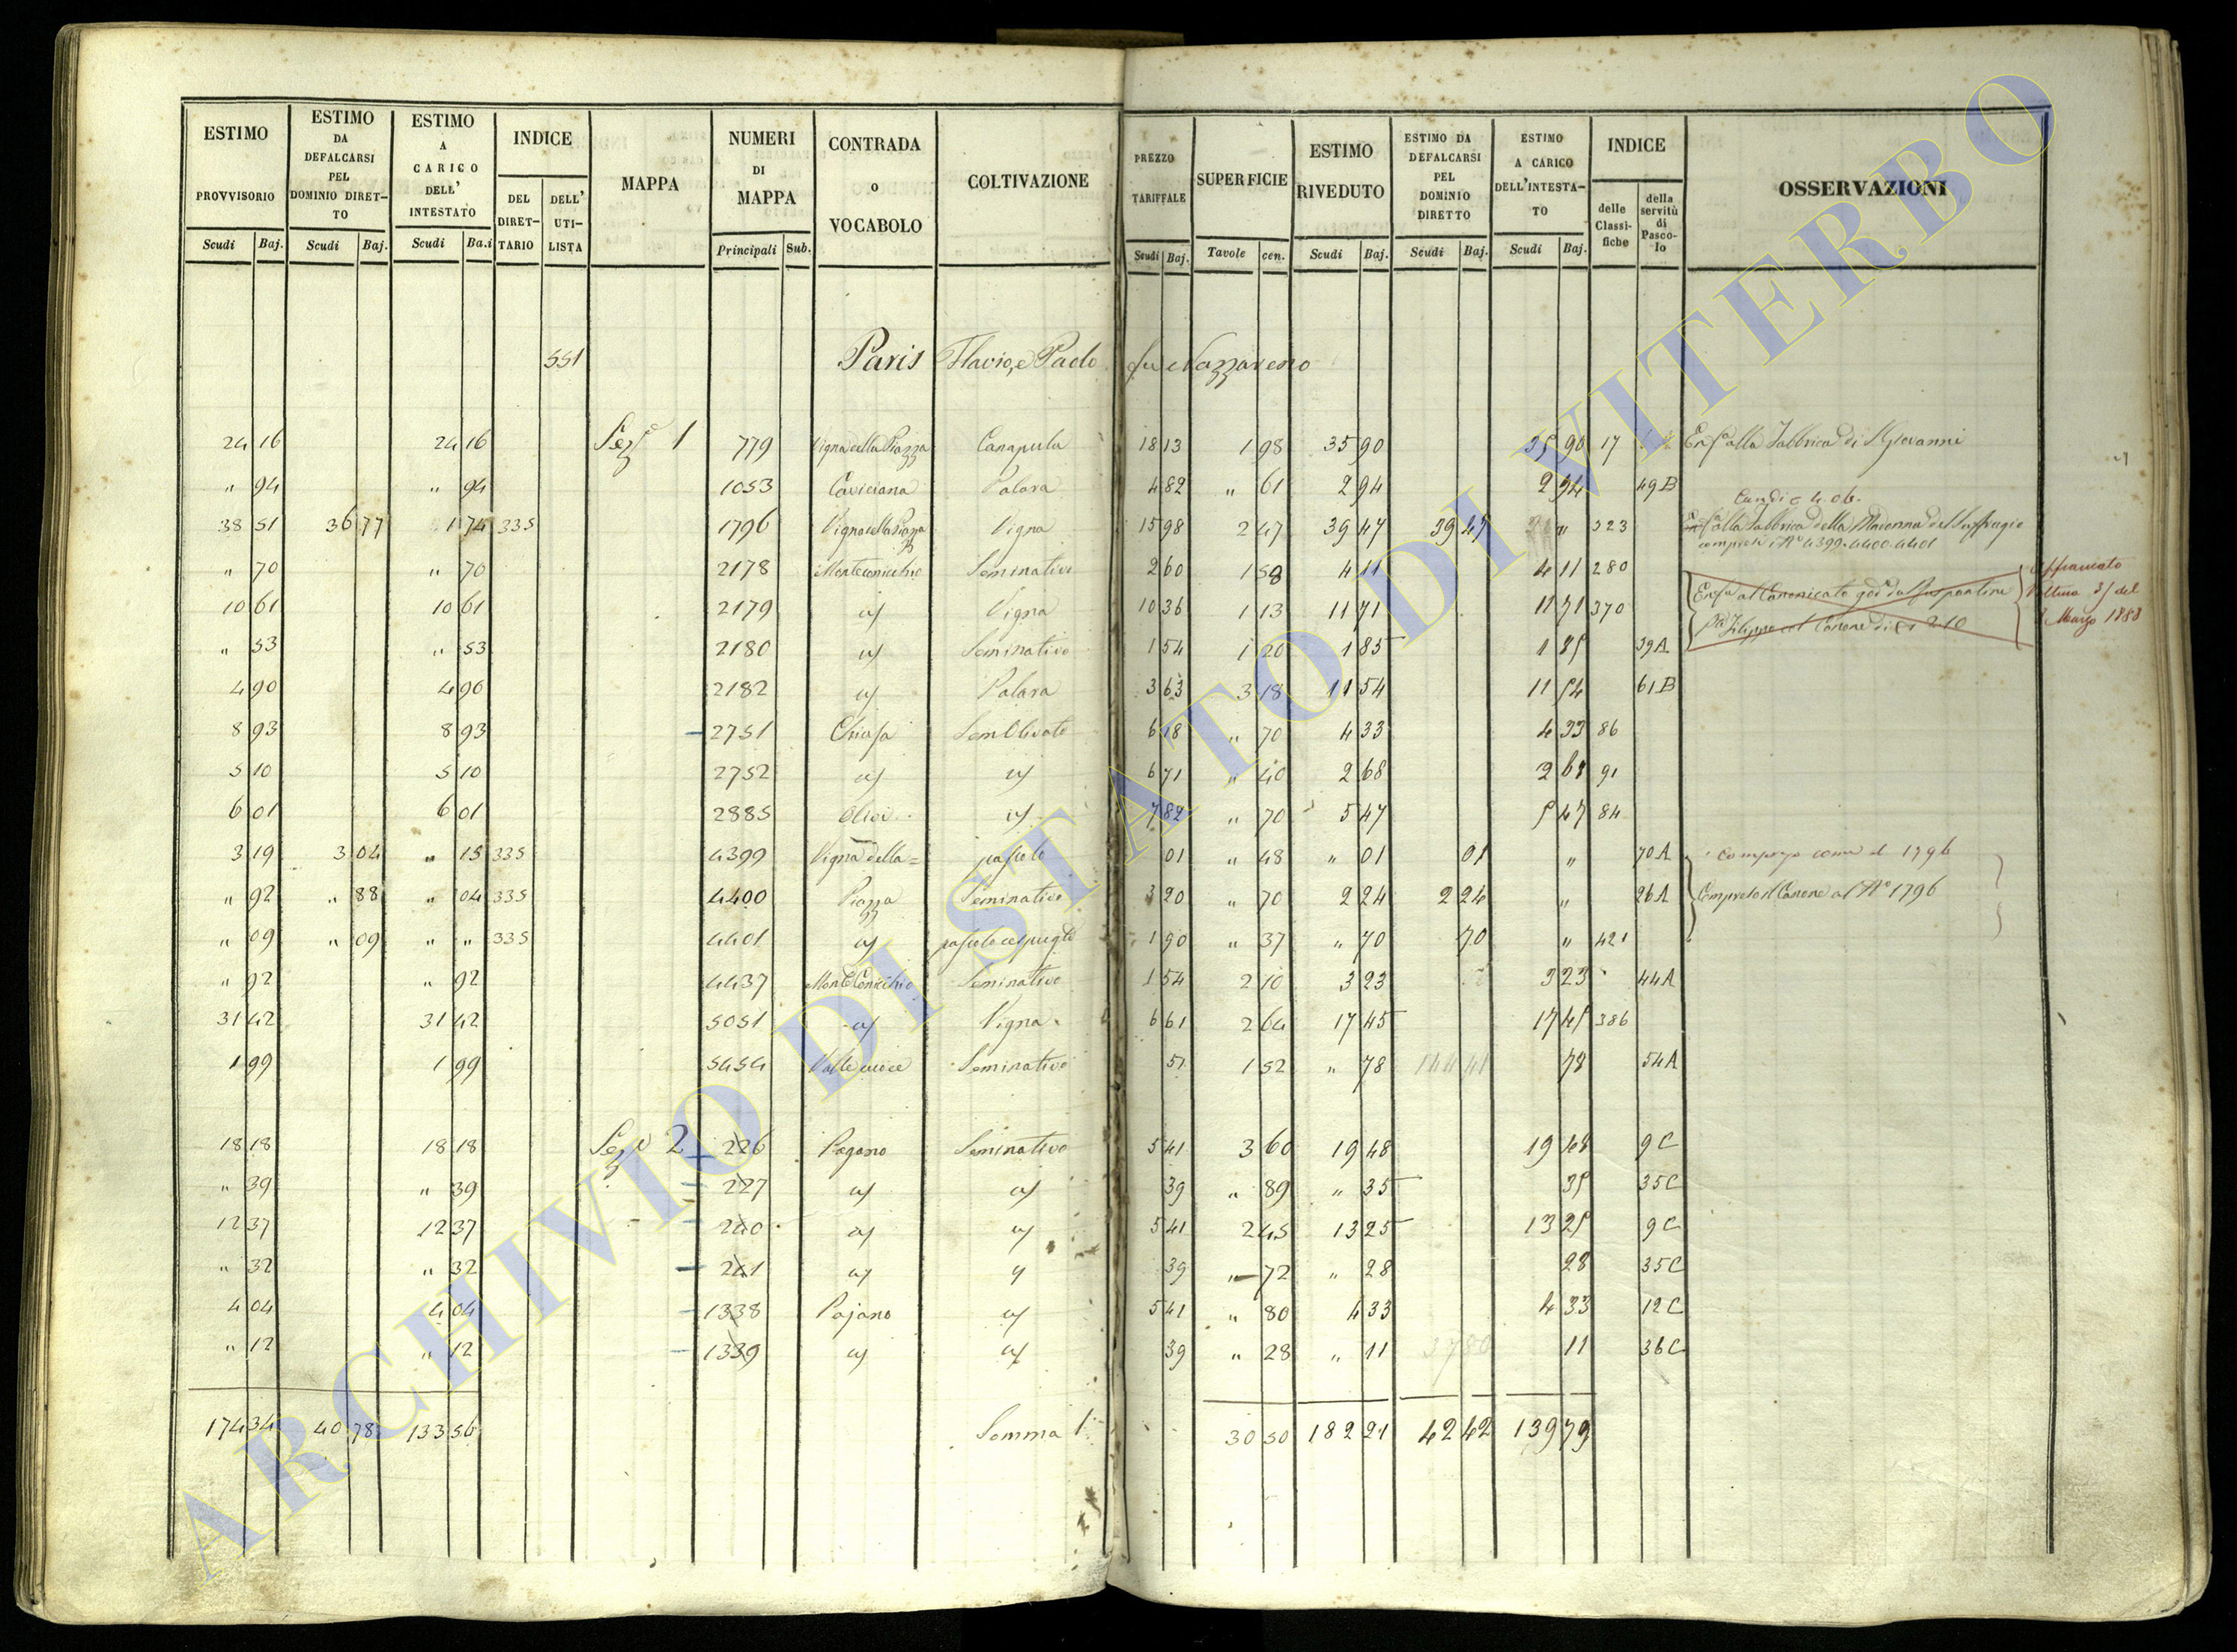 ESTIMO PROVVISORIO Scudi Baj. | ESTIMO DA DEFALCARSI PEL DOMINIO DIRETTO Scudi Baj. | ESTIMO A CARICO DELL' INTESTATO Scudi Ba.i | INDICE DEL DIRETTARIO DELL' UTILISTA | MAPPA | NUMERI DI MAPPA Principali Sub. | CONTRADA O VOCABOLO | COLTIVAZIONE | PREZZO TARIFFALE Scudi Baj. | SUPERFICIE Tavole cen. | ESTIMO RIVEDUTO Scudi Baj. | ESTIMO DA DEFALCARSI PEL DOMINIO DIRETTO Scudi Baj. | ESTIMO A CARICO DELL'INTESTATO Scudi Baj. | INDICE delle Classifiche della servitù di Pascolo | OSSERVAZIONI
551 Paris Flavio, e Paolo fu Nazzareno
24 16 24 16 Seze 1 779 Vigna della Piazza Canapula 18 13 1 98 35 90 35 90 17 alla Fabbrica di S Giovanni
" 94 " 94 1053 Caviciana Palara 4 82 " 61 2 94 2 94 49B
38 51 36 77 1 74 335 1796 Vigna della Piazza Vigna 15 98 2 47 39 47 39 47 " 323 alla Fabbrica della Madonna del Suffragio
compresi i No 4399.4400.4401
" 70 " 70 2178 Seminativo 2 60 1 58 4 11 4 11 280
10 61 10 61 2179 Vigna 10 36 1 13 11 71 11 71 370 al Canonicato
affrancato
Voltura 31 del
Marzo 1888
" 53 " 53 2180 Seminativo 1 54 1 20 1 85 1 85 39A Filippo col Canone di 2.10
4 90 4 90 2182 Palara 3 63 3 18 11 54 11 54 61B
8 93 8 93 2751 Chiusa Sem Olivato 6 18 " 70 4 33 4 33 86
5 10 5 10 2752 6 71 " 40 2 68 2 68 91
6 01 6 01 2885 Olivi 7 82 " 70 5 47 5 47 84
3 19 3 04 " 15 335 4399 Vigna della= pascolo 01 " 48 " 01 01 " 70A come al 1796
" 92 " 88 " 04 335 4400 Piazza Seminativo 3 20 " 70 2 24 2 24 " 26A Compreso il Canone al No 1796
" 09 " 09 " " 335 4401 pascolo cespuglo 1 90 " 37 " 70 70 " 421
" 92 " 92 4437 Seminativo 1 54 2 10 3 23 3 23 44A
31 42 31 42 5051 Vigna 6 61 2 64 17 45 17 45 386
1 99 1 99 5454 Seminativo 51 1 52 " 78 78 54A
18 18 18 18 Sez 2 226 Pagano Seminativo 5 41 3 60 19 48 19 48 9C
" 39 " 39 227 39 " 89 " 35 35 35C
12 37 12 37 240 5 41 2 45 13 25 13 25 9C
" 32 " 32 241 39 " 72 " 28 28 35C
4 04 4 04 1338 Pajano 5 41 " 80 4 33 4 33 12C
" 12 " 12 1339 39 " 28 " 11 11 36C
174 34 40 78 133 56 Somma 30 50 182 21 42 42 139 79
ARCHIVIO DI STATO DI VITERBO